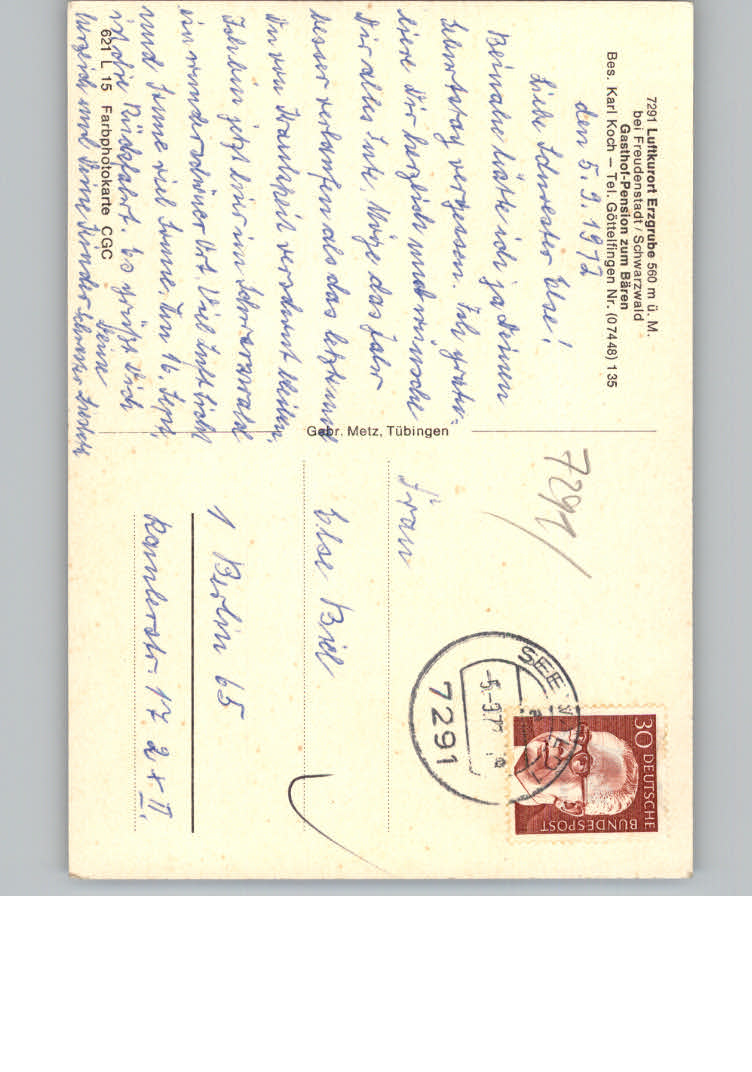 7291 Luftkurort Erzgrube 560 m ü. M.
bei Freudenstadt / Schwarzwald
Gasthof-Pension zum Bären
Bes. Karl Koch – Tel. Göttelfingen Nr. (07448) 135
den 5. 9. 1972
Liebe Schwester Else!
Beinahe hätte ich ja Deinen
Geburtstag vergessen. Ich gratu-
liere Dir herzlich und wünsche
Dir alles Gute. Möge das Jahr
besser verlaufen als das letzte und
Du von Krankheit verschont bleiben.
Ich bin jetzt hier im Schwarzwald
ein wunderschöner Ort. Viel Luft Licht
und Sonne viel Sonne. Am 16. Sept.
ist die Rückfahrt. Es grüßt Dich
Deine
herzlich und Deine Kinder Schwester
621 L 15 Farbphotokarte CGC
Gebr. Metz, Tübingen
7291
Frau
Else Biel
1 Berlin 65
17 2 x II.
SEEWALD
5.-9.7
7291
30 DEUTSCHE
BUNDESPOST